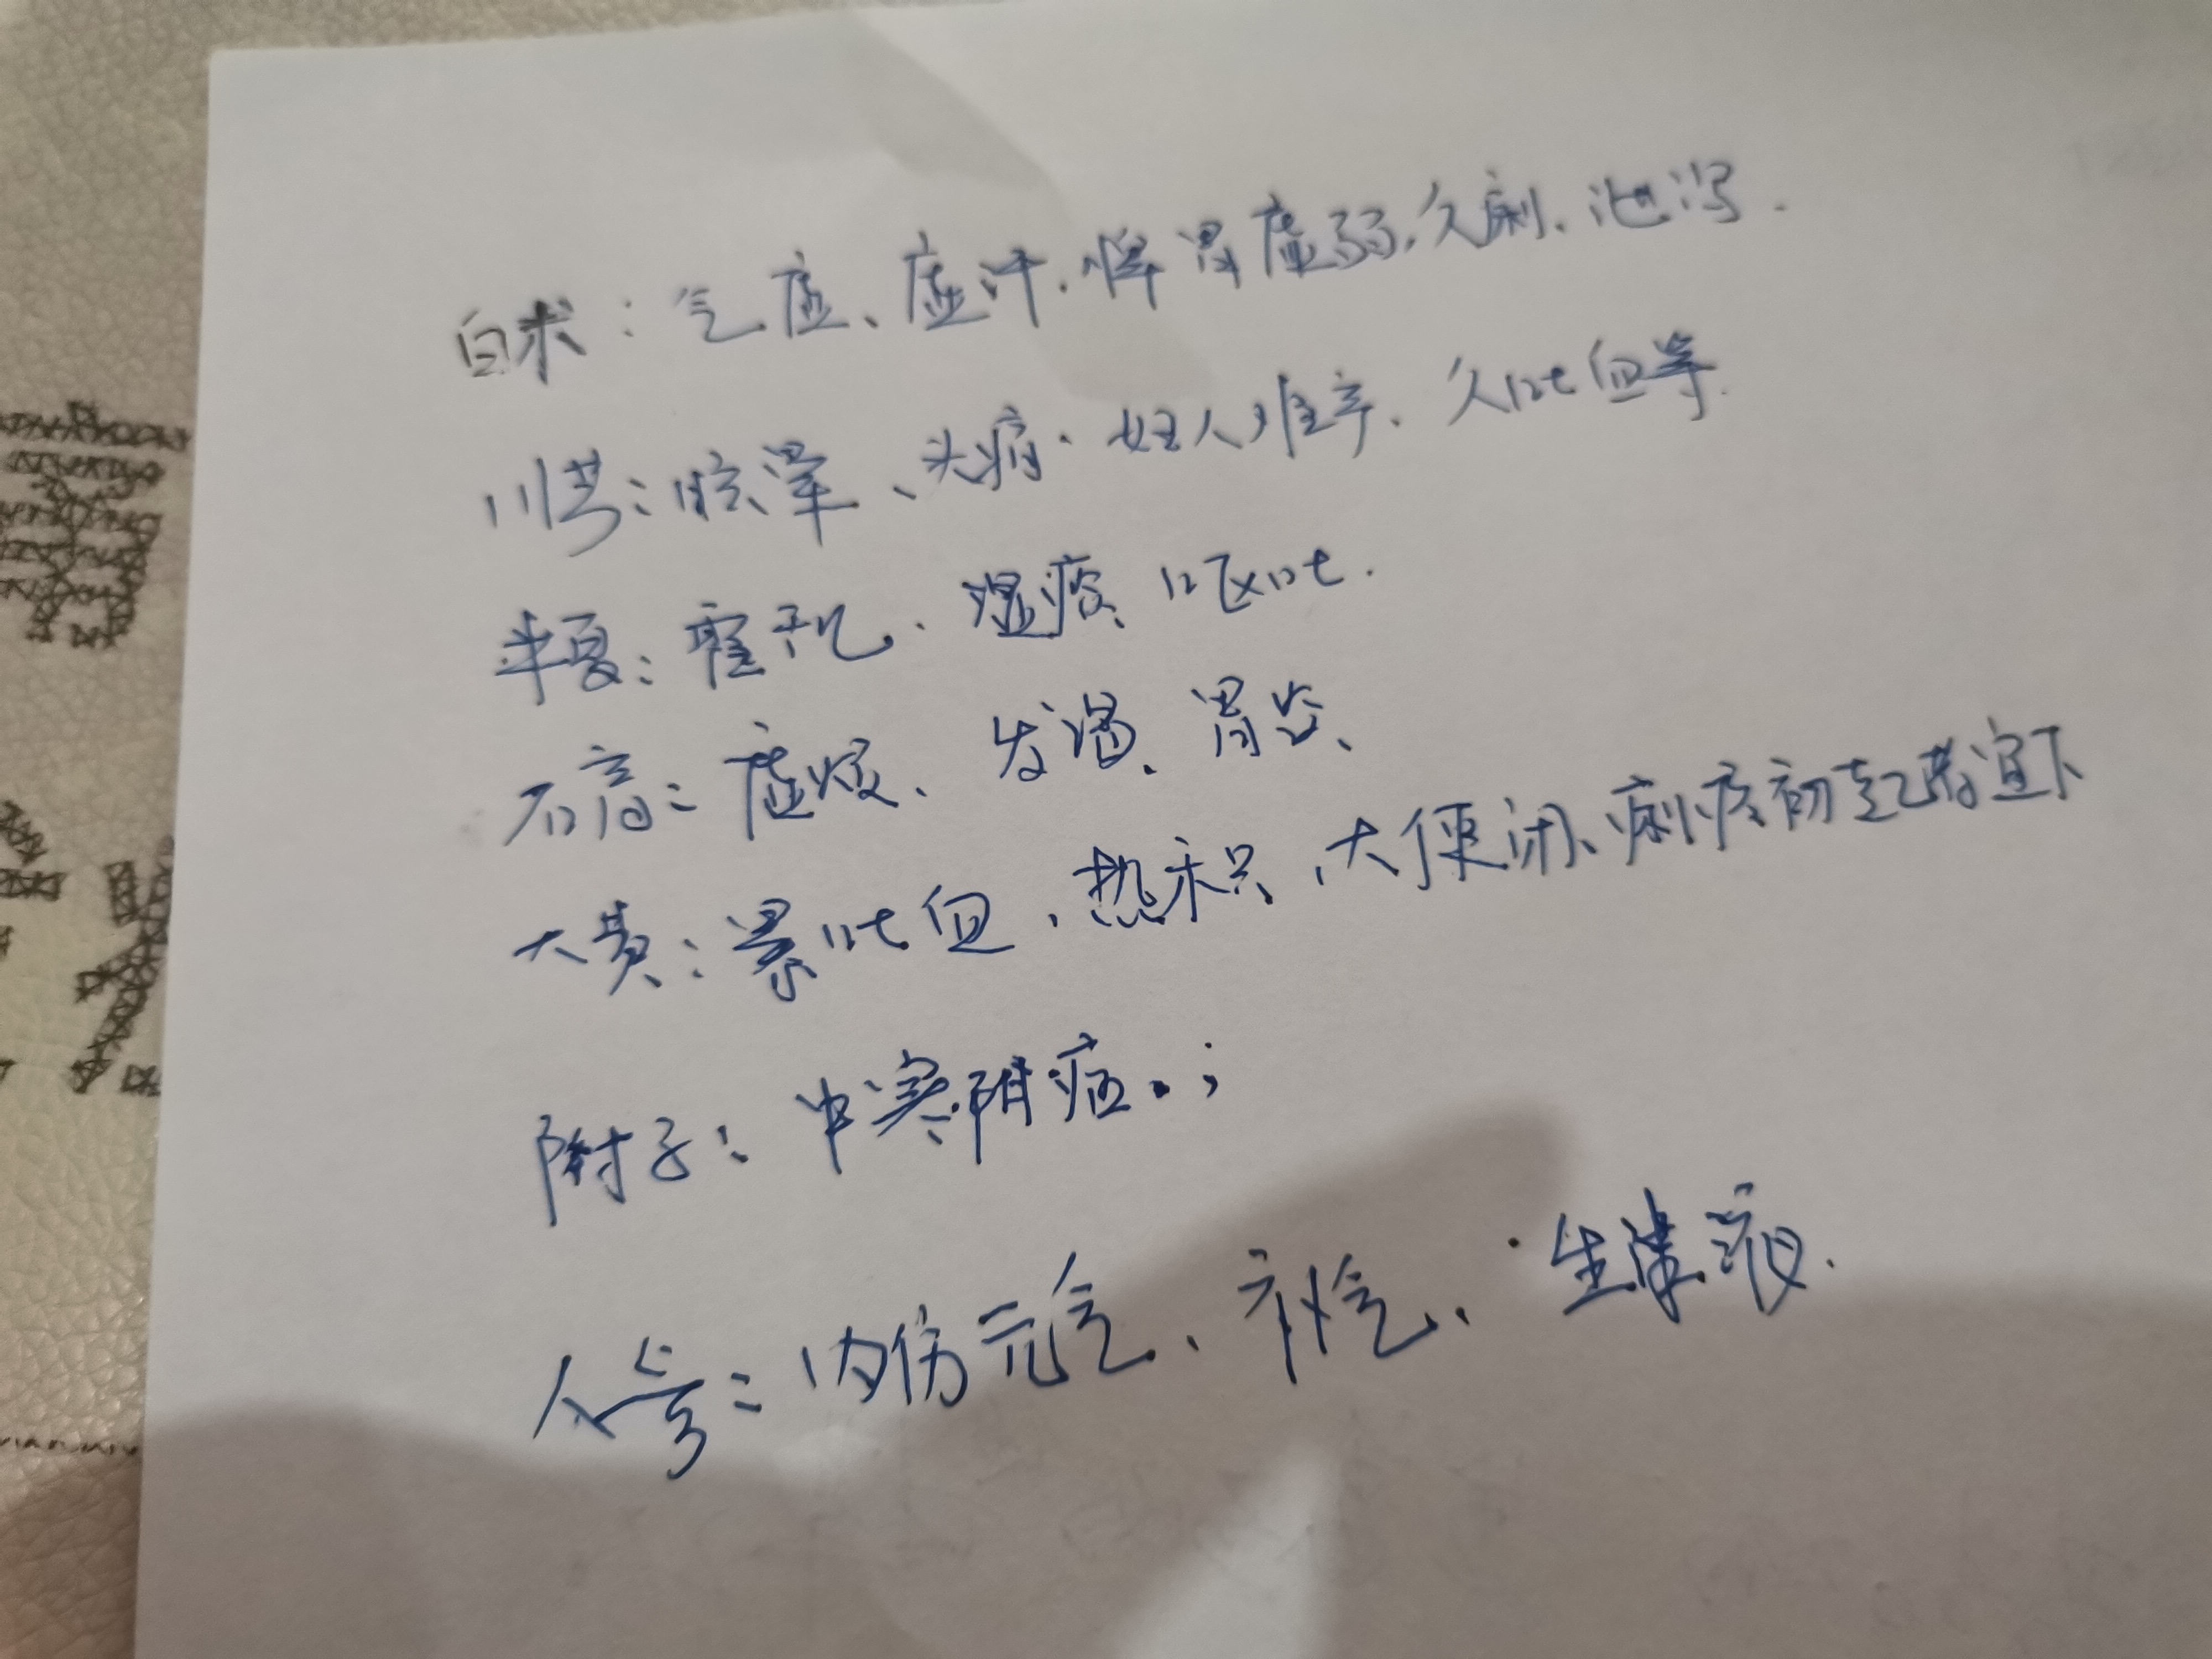 白术：气虚、虚汗、脾胃虚弱、久痢、泄泻.
川芎：眩晕、头痛、妇人难产、久吐血等.
半夏：霍乱、湿痰、呕吐.
石膏：虚烦、发渴、胃炎、
大黄：累吐血、热积、大便闭、痢疾初起者宜下
附子：中寒阴症。；
人参：内伤元气、补气、生津液.